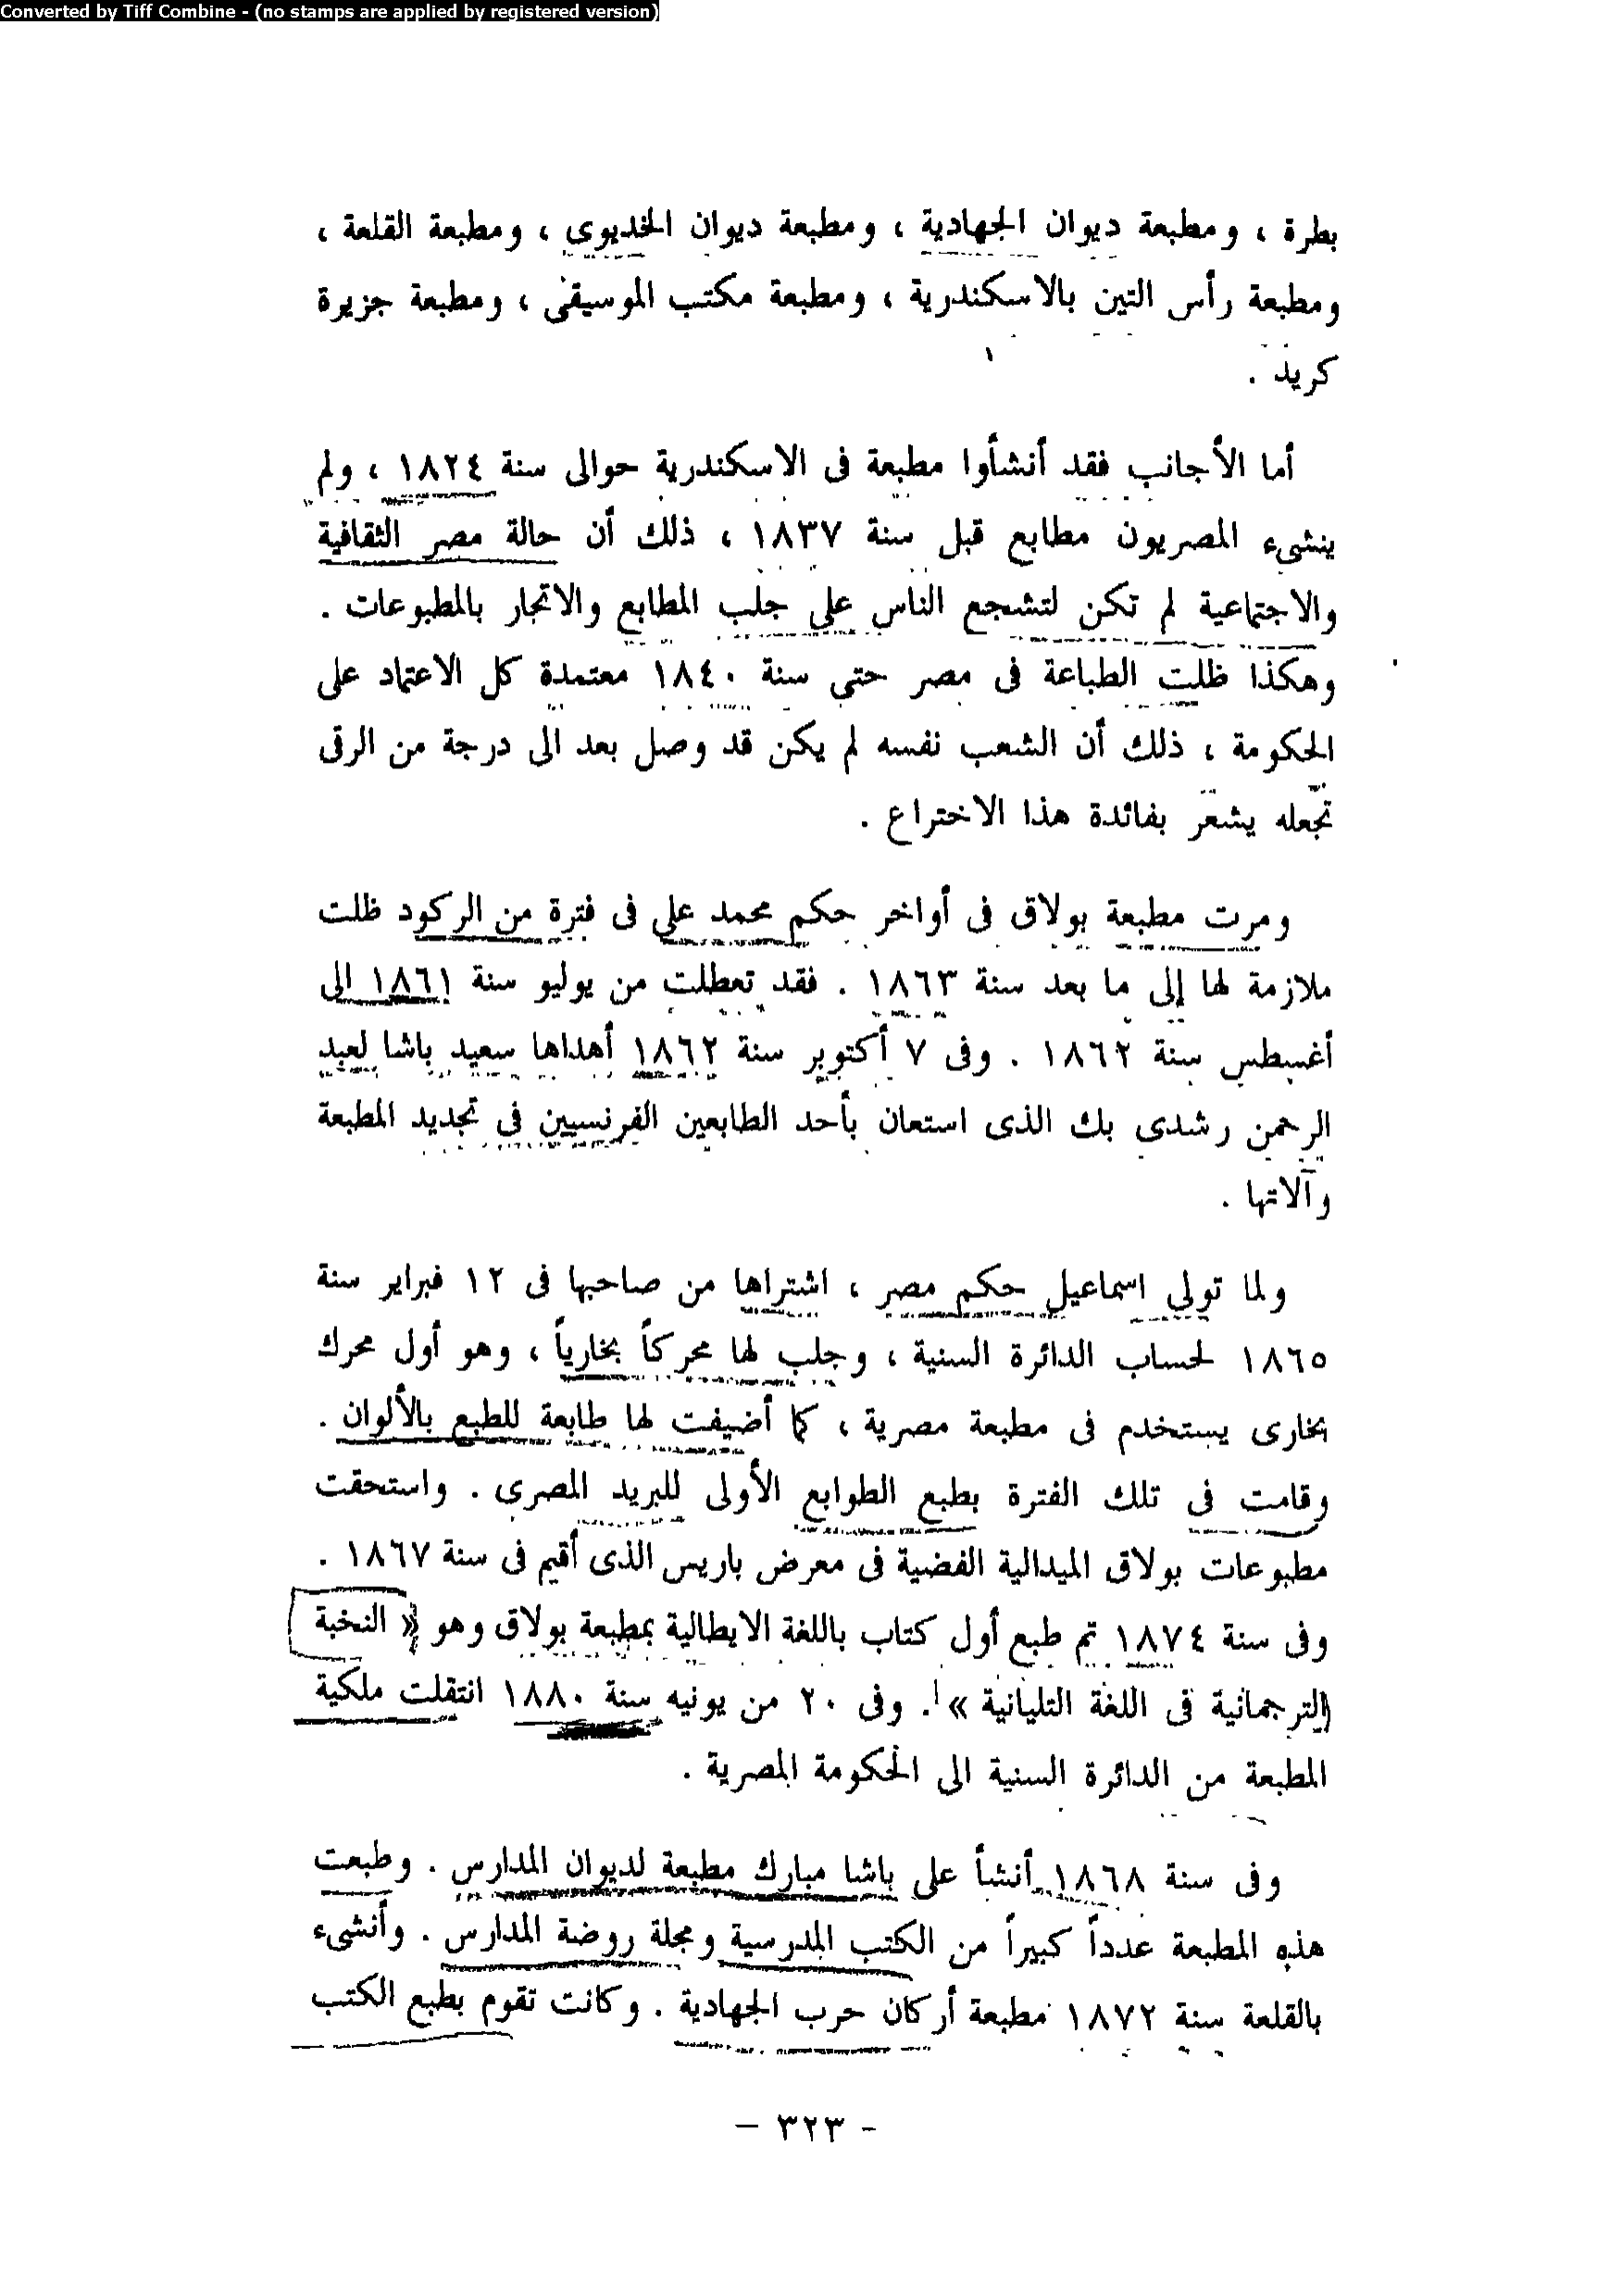 Converted by Tiff Combine - (no stamps are applied by registered version)
بطرة ، ومطبعة ديوان الجهادية ، ومطبعة ديوان الخديوى ، ومطبعة القلعة ،
ومطبعة رأس التين بالاسكندرية ، ومطبعة مكتب الموسيقى ، ومطبعة جزيرة
كريد .
أما الأجانب فقد أنشأوا مطبعة فى الاسكندرية حوالى سنة ١٨٢٤ ، ولم
ينشىء المصريون مطابع قبل سنة ١٨٣٧ ، ذلك أن حالة مصر الثقافية
والاجتماعية لم تكن لتشجع الناس على جلب المطابع والاتجار بالمطبوعات .
وهكذا ظلت الطباعة فى مصر حتى سنة ١٨٤٠ معتمدة كل الاعتماد على
الحكومة ، ذلك أن الشعب نفسه لم يكن قد وصل بعد الى درجة من الرقى
تجعله يشعر بفائدة هذا الاختراع .
ومرت مطبعة بولاق فى أواخر حكم محمد على فى فترة من الركود ظلت
ملازمة لها إلى ما بعد سنة ١٨٦٣ . فقد تعطلت من يوليو سنة ١٨٦١ الى
أغسطس سنة ١٨٦٢ . وفى ٧ أكتوبر سنة ١٨٦٢ أهداها سعيد باشا لعبد
الرحمن رشدى بك الذى استعان بأحد الطابعين الفرنسيين فى تجديد المطبعة
وآلاتها .
ولما تولى اسماعيل حكم مصر ، اشتراها من صاحبها فى ١٢ فبراير سنة
١٨٦٥ لحساب الدائرة السنية ، وجلب لها محركاً بخارياً ، وهو أول محرك
بخارى يستخدم فى مطبعة مصرية ، كما أضيفت لها طابعة للطبع بالألوان .
وقامت فى تلك الفترة بطبع الطوابع الأولى للبريد المصرى . واستحقت
مطبوعات بولاق الميدالية الفضية فى معرض باريس الذى أقيم فى سنة ١٨٦٧ .
وفى سنة ١٨٧٤ تم طبع أول كتاب باللغة الايطالية بمطبعة بولاق وهو « النخبة
الترجمانية فى اللغة التليانية » . وفى ٢٠ من يونيه سنة ١٨٨٠ انتقلت ملكية
المطبعة من الدائرة السنية الى الحكومة المصرية .
وفى سنة ١٨٦٨ أنشأ على باشا مبارك مطبعة لديوان المدارس . وطبعت
هذه المطبعة عدداً كبيراً من الكتب المدرسية ومجلة روضة المدارس . وأنشىء
بالقلعة سنة ١٨٧٢ مطبعة أركان حرب الجهادية . وكانت تقوم بطبع الكتب
- ٣٢٣ -